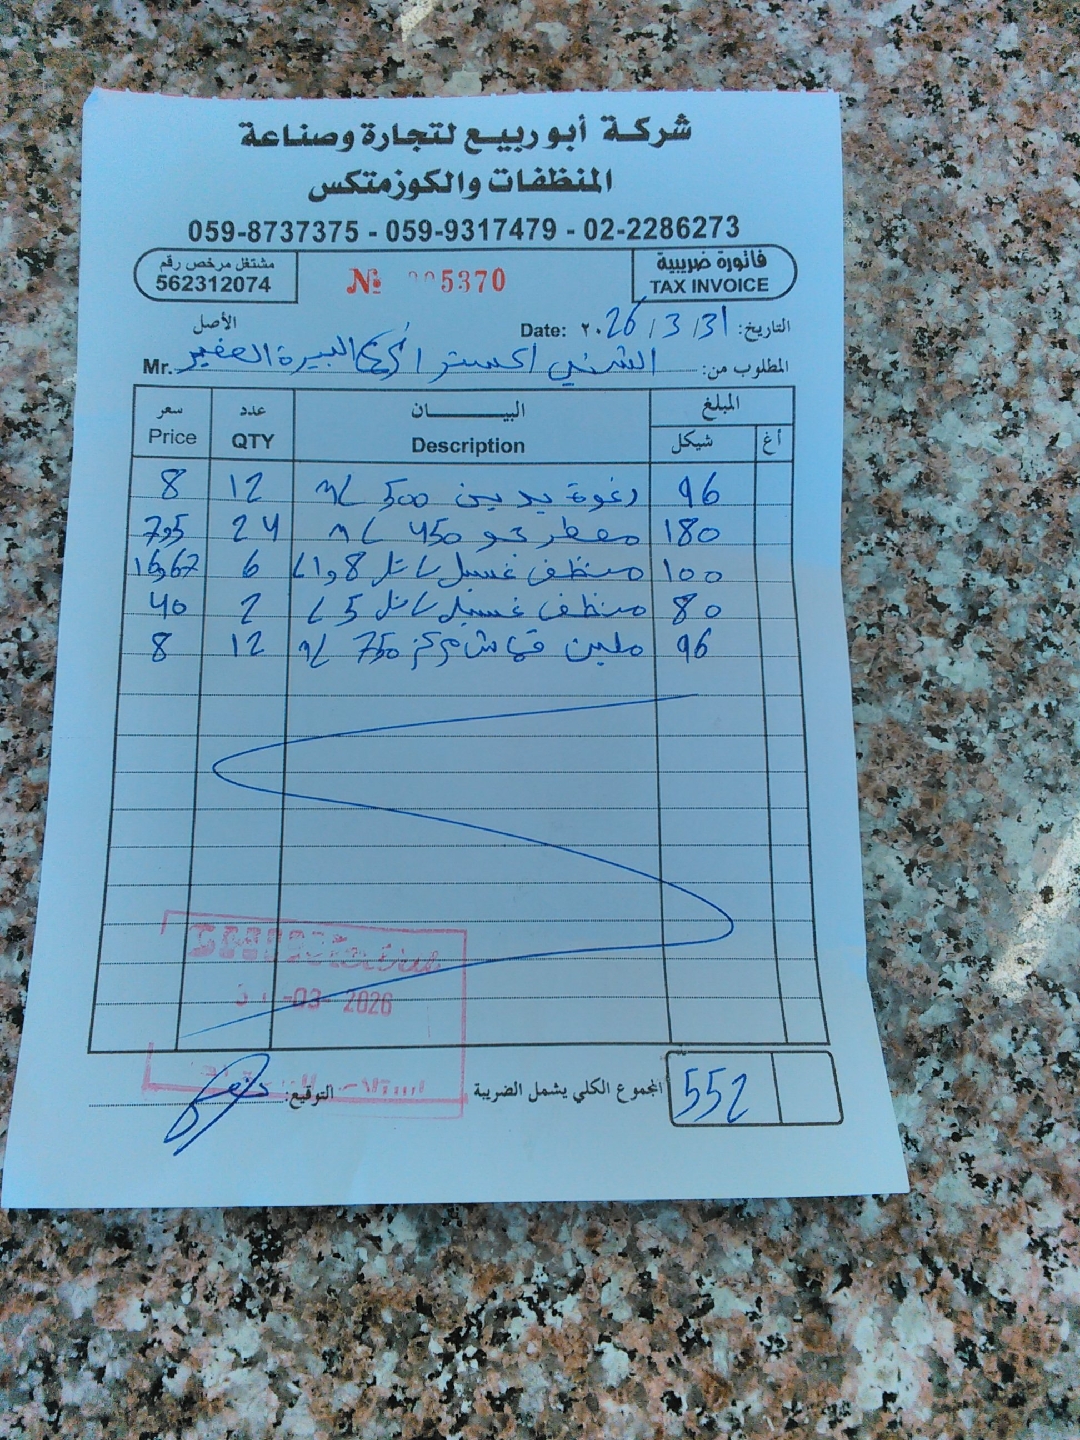 شركة أبو ربيع لتجارة وصناعة
المنظفات والكوزمتكس
059-8737375 - 059-9317479 - 02-2286273
فاتورة ضريبية
TAX INVOICE
№ 005370
مشتغل مرخص رقم
562312074
الأصل
التاريخ: 31 / 3 / 2026 Date:
المطلوب من: الشني اكسترا البيرة الصغير Mr.
المبلغ البيــــــان عدد سعر
أغ شيكل Description QTY Price
96 رغوة يدين 500 mL 12 8
180 معطر جو 450 mL 24 7,5
100 منظف غسيل سائل 1,8 L 6 16,67
80 منظف غسيل سائل 5 L 2 40
96 ملين قماش مركز 750 mL 12 8
-03- 2026
المجموع الكلي يشمل الضريبة 552
التوقيع: